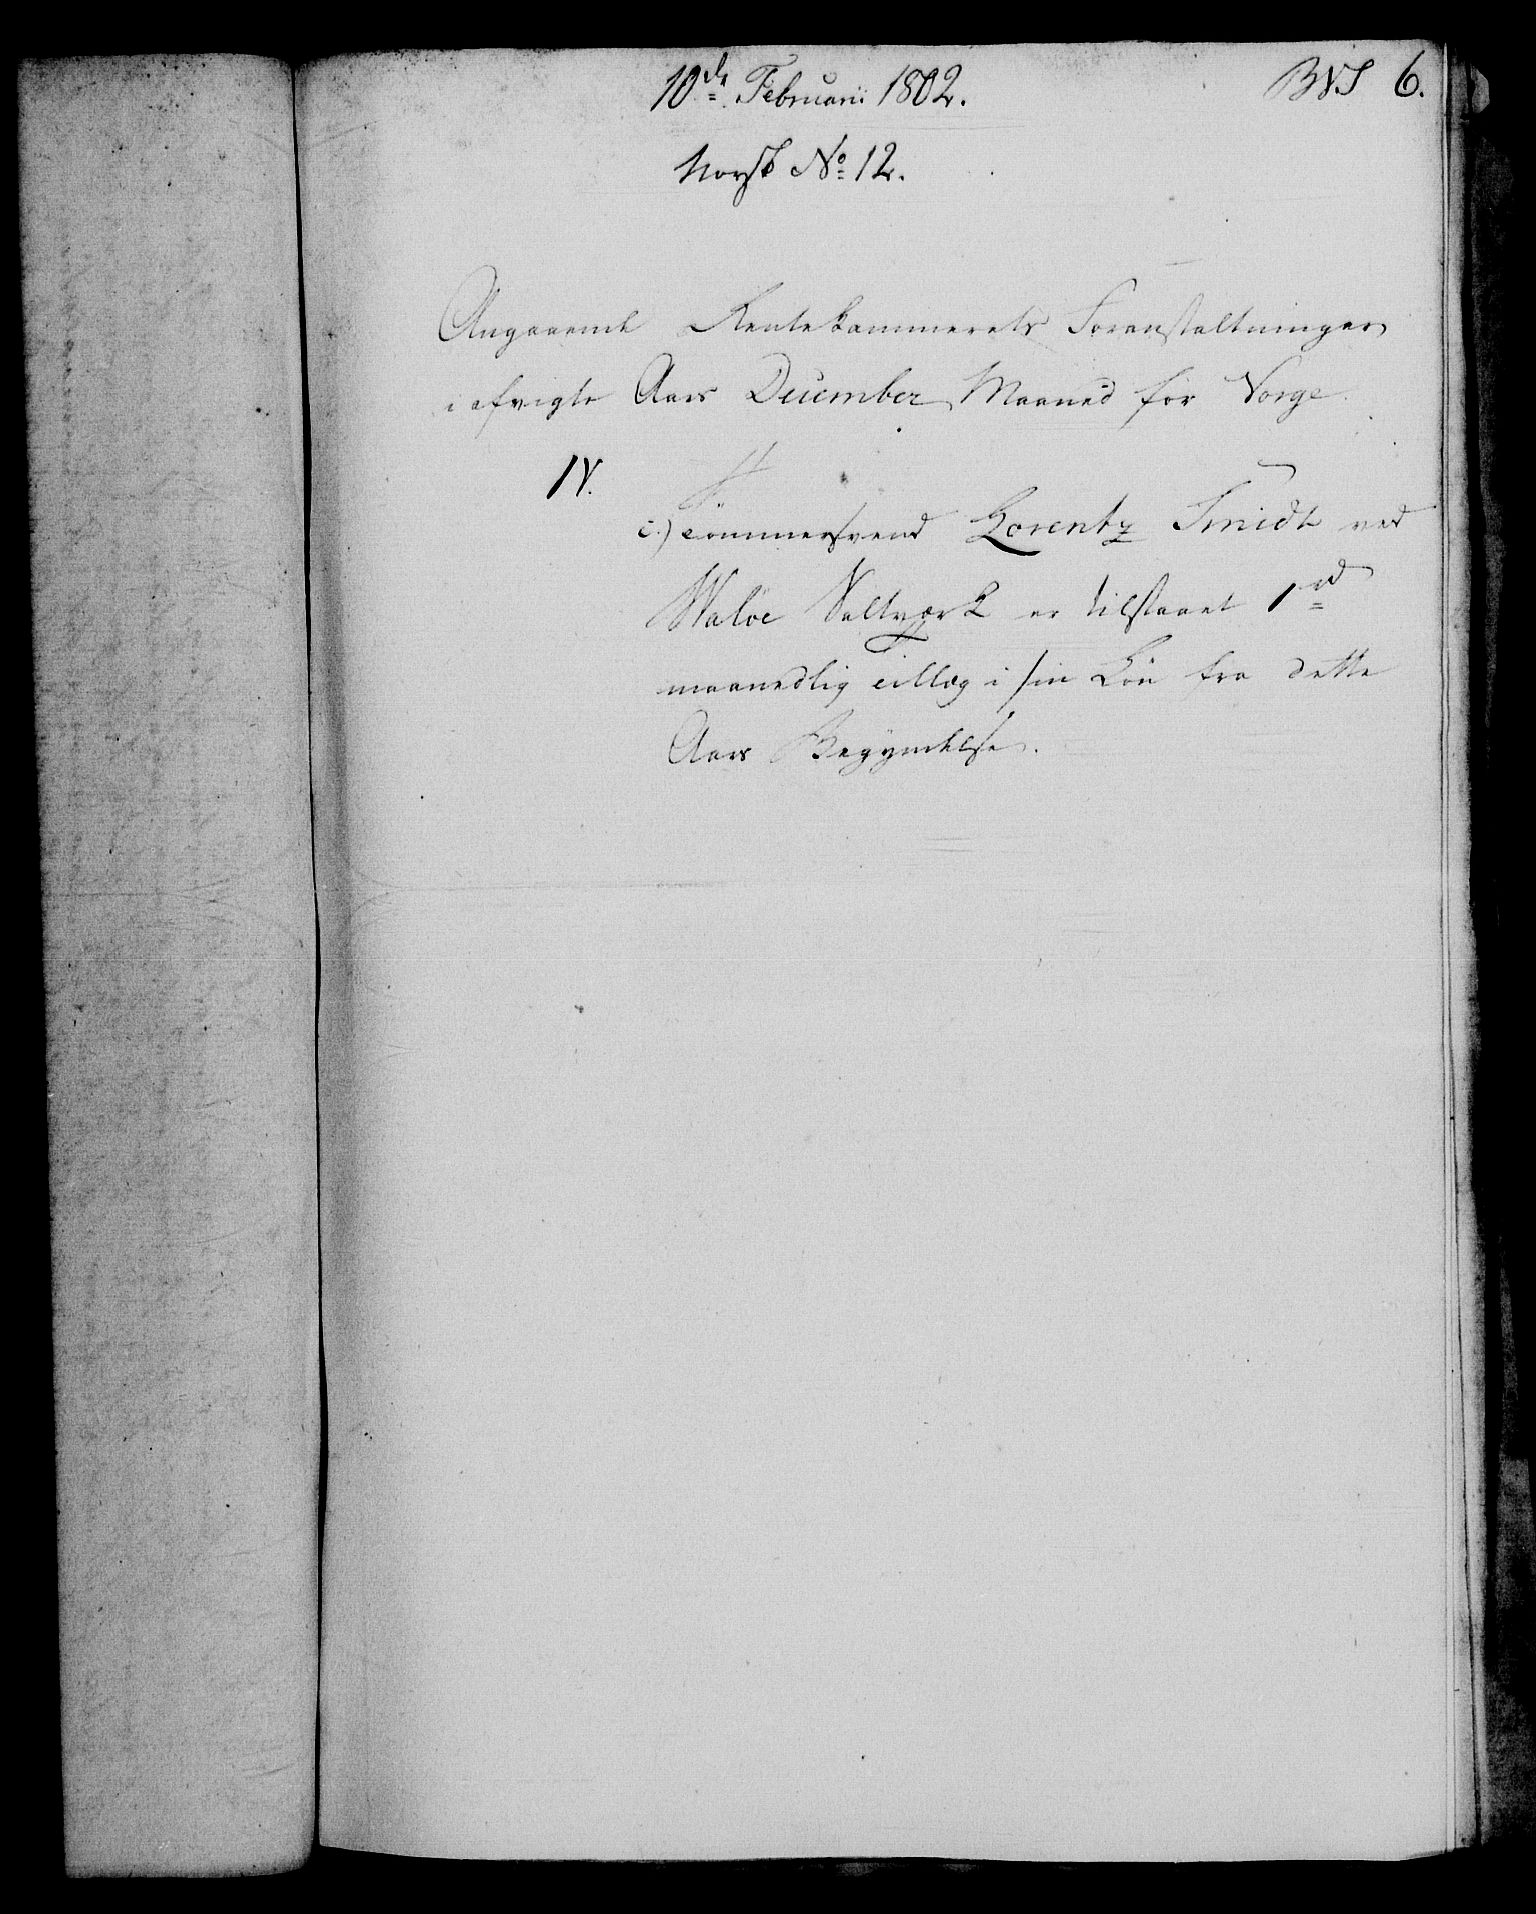 10de Februarii 1802.
BVS 6.
Norsk No 12.
Angaaende Rentekammerets Foranstaltninger
i afvigte Aars December Maaned for Norge.
IV.
c.) Tømmersvend Lorentz Smidt ved
Waløe Saltværk er tilstaaet 1 rd
maanedlig Tillæg i sin Løn fra dette
Aars Begyndelse.